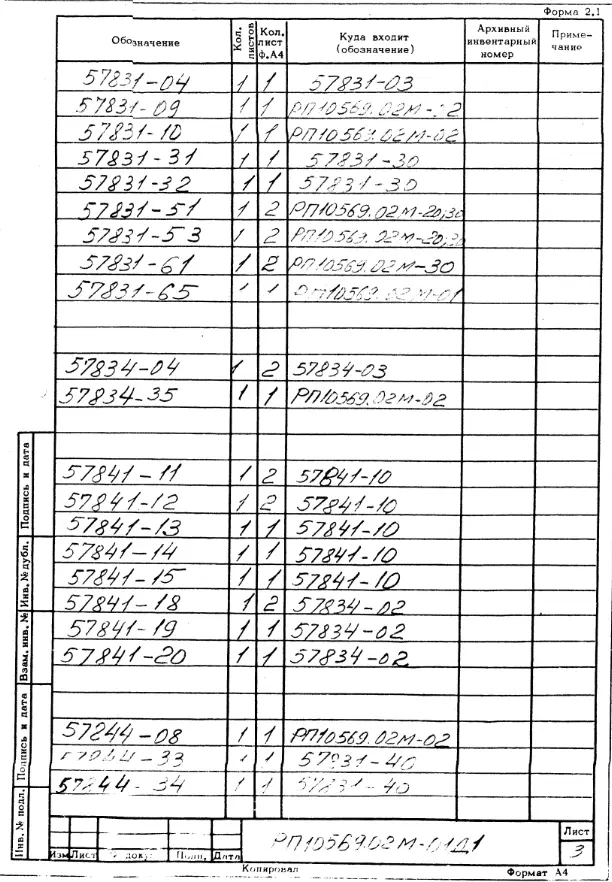 Форма 2.1
Обозначение Кол. листов Кол. лист ф.А4 Куда входит (обозначение) Архивный инвентарный номер Примечание
57831-04 1 1 57831-03
57831-09 1 1 РП10569.02М-
57831-10 1 1 РП10569.02М-02
57831-31 1 1 57831-30
57831-32 1 1 57831-30
57831-51 1 2 РП10569.02М-20,30
57831-53 1 2 РП10569.02М-20,30
57831-61 1 2 РП10569.02М-30
57831-65 1 1 РП10569.02М-01
57834-04 1 2 57834-03
57834-35 1 1 РП10569.02М-02
57841-11 1 2 57841-10
57841-12 1 2 57841-10
57841-13 1 1 57841-10
57841-14 1 1 57841-10
57841-15 1 1 57841-10
57841-18 1 2 57834-02
57841-19 1 1 57834-02
57841-20 1 1 57834-02
57244-08 1 1 РП10569.02М-02
-33 1 1 -40
57244-34 1 1 -40
Инв. № подл. Подпись и дата Взам. инв. № Инв. № дубл. Подпись и дата
РП10569.02М-01Д1
Лист
3
Изм Лист № докум. Подп. Дата
Копировал Формат А4